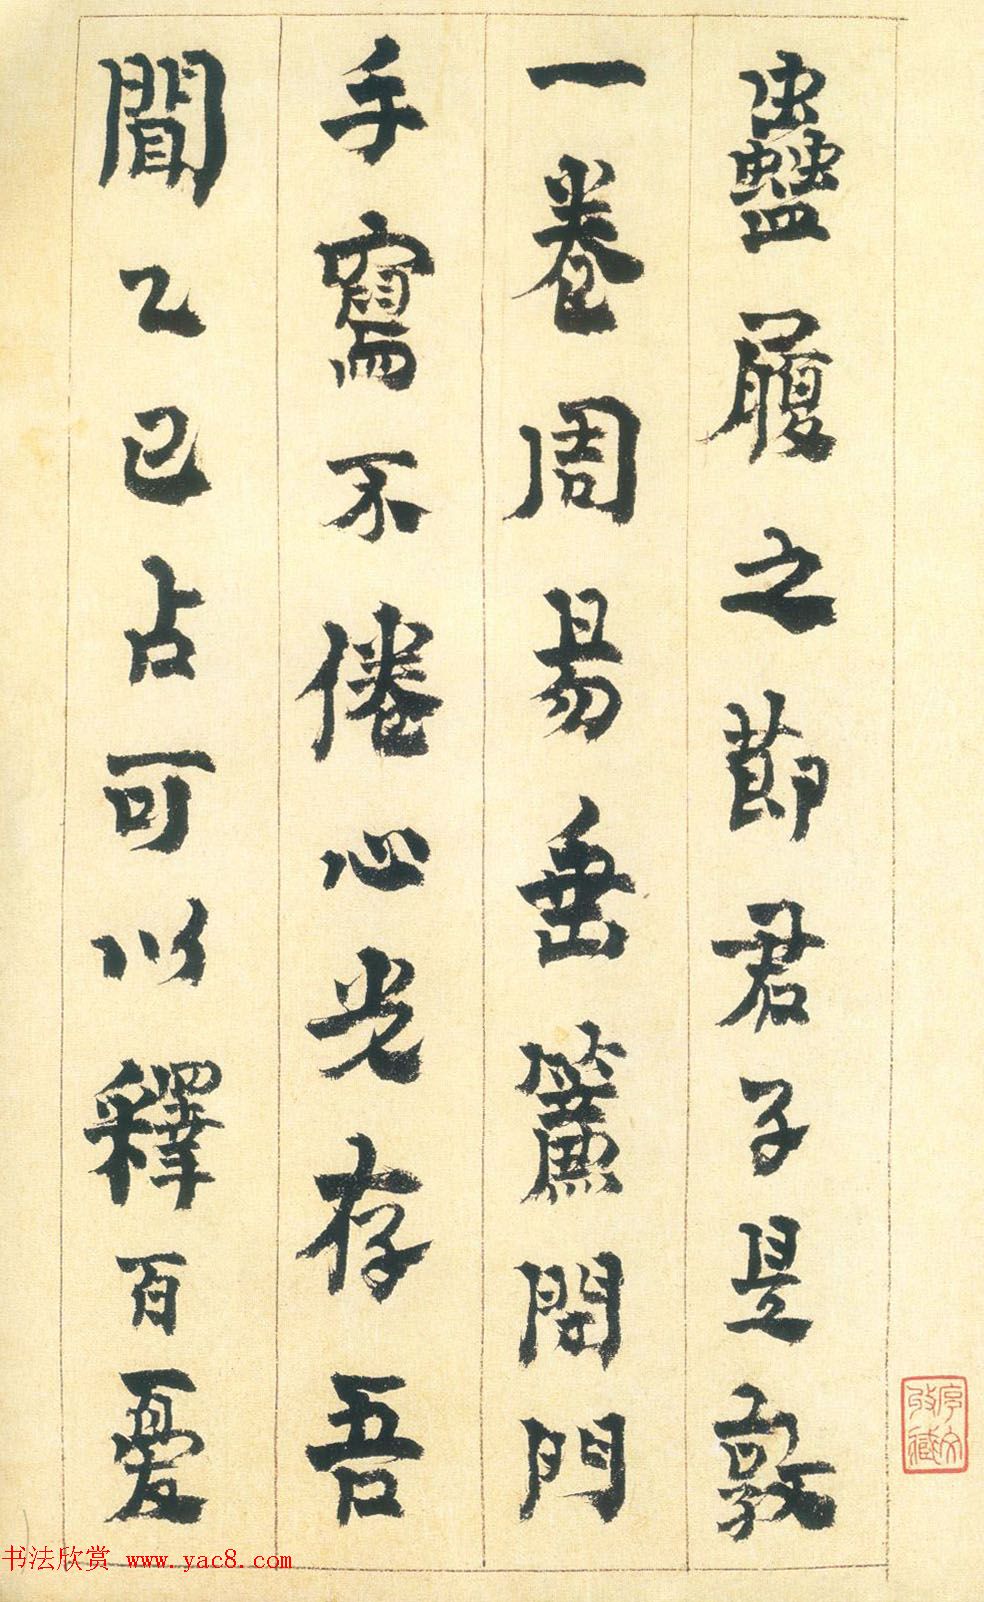 蠱履之節君子是敦
一卷周易垂簾閉門
手寫不倦心光存吾
聞乙巳占可以釋百憂
书法欣赏 www.yac8.com